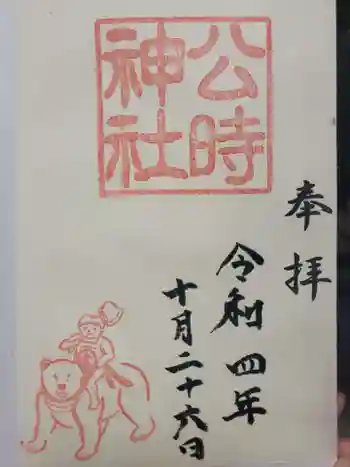 公時
神社
奉拝
令和四年
十月二十六日